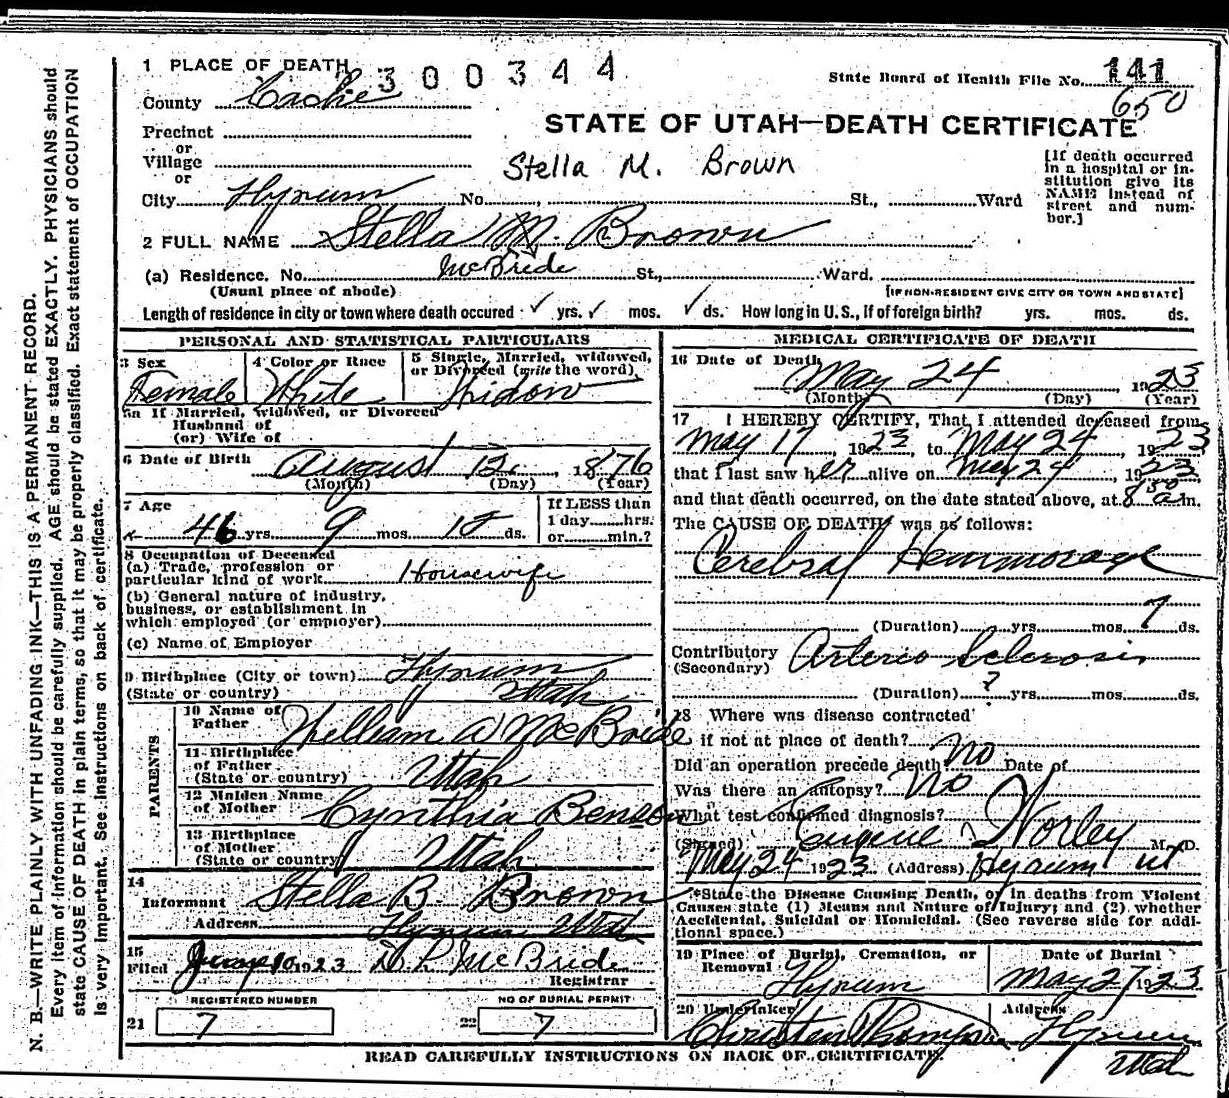 1 PLACE OF DEATH 300344
State Board of Health File No. 141
County Cache
650
STATE OF UTAH—DEATH CERTIFICATE
Precinct
or
Village
or
Stella M. Brown
[If death occurred in a hospital or institution give its NAME instead of street and number.]
City Hyrum No. St., Ward
2 FULL NAME Stella M. Brown
McBride
(a) Residence. No. St., Ward.
(Usual place of abode) [IF NON-RESIDENT GIVE CITY OR TOWN AND STATE]
Length of residence in city or town where death occured ✓ yrs. ✓ mos. ✓ ds. How long in U.S., if of foreign birth? yrs. mos. ds.
PERSONAL AND STATISTICAL PARTICULARS
3 Sex Female
4 Color or Race White
5 Single, Married, widowed, or Divorced (write the word) Widow
5a If Married, widowed, or Divorced
Husband of
(or) Wife of
6 Date of Birth August 12, 1876
(Month) (Day) (Year)
7 Age 46 yrs. 9 mos. 12 ds.
If LESS than
1 day hrs.
or min.?
8 Occupation of Deceased
(a) Trade, profession or
particular kind of work Housewife
(b) General nature of industry,
business, or establishment in
which employed (or employer)
(c) Name of Employer
9 Birthplace (City or town) Hyrum
(State or country) Utah
PARENTS
10 Name of Father William A McBride
11 Birthplace
of Father
(State or country) Utah
12 Maiden Name
of Mother Cynthia Benson
13 Birthplace
of Mother
(State or country) Utah
14
Informant Stella B. Brown
Address Hyrum Utah
15
Filed June 10 1923 McBride
Registrar
REGISTERED NUMBER
21 7
NO OF BURIAL PERMIT
22 7
MEDICAL CERTIFICATE OF DEATH
16 Date of Death May 24 1923
(Month) (Day) (Year)
17 I HEREBY CERTIFY, That I attended deceased from
May 17, 1923, to May 24, 1923
that I last saw her alive on May 24, 1923
and that death occurred, on the date stated above, at 8 50 a.m.
The CAUSE OF DEATH* was as follows:
Cerebral Hemmorage
(Duration) yrs. mos. 7 ds.
Contributory Arterio Sclerosis
(Secondary)
(Duration) ? yrs. mos. ds.
18 Where was disease contracted
if not at place of death?
Did an operation precede death No Date of
Was there an autopsy? No
What test confirmed diagnosis?
(Signed) Eugene Worley M. D.
May 24 1923 (Address) Hyrum Ut
*State the Disease Causing Death, or in deaths from Violent
Causes state (1) Means and Nature of Injury; and (2) whether
Accidental, Suicidal or Homicidal. (See reverse side for addi-
tional space.)
19 Place of Burial, Cremation, or
Removal Hyrum
Date of Burial
May 27 1923
20 Undertaker
Christen Thompson
Address
Hyrum
Utah
READ CAREFULLY INSTRUCTIONS ON BACK OF CERTIFICATE.
N. B.—WRITE PLAINLY WITH UNFADING INK—THIS IS A PERMANENT RECORD.
Every item of information should be carefully supplied. AGE should be stated EXACTLY. PHYSICIANS should
state CAUSE OF DEATH in plain terms, so that it may be properly classified. Exact statement of OCCUPATION
is very important. See instructions on back of certificate.